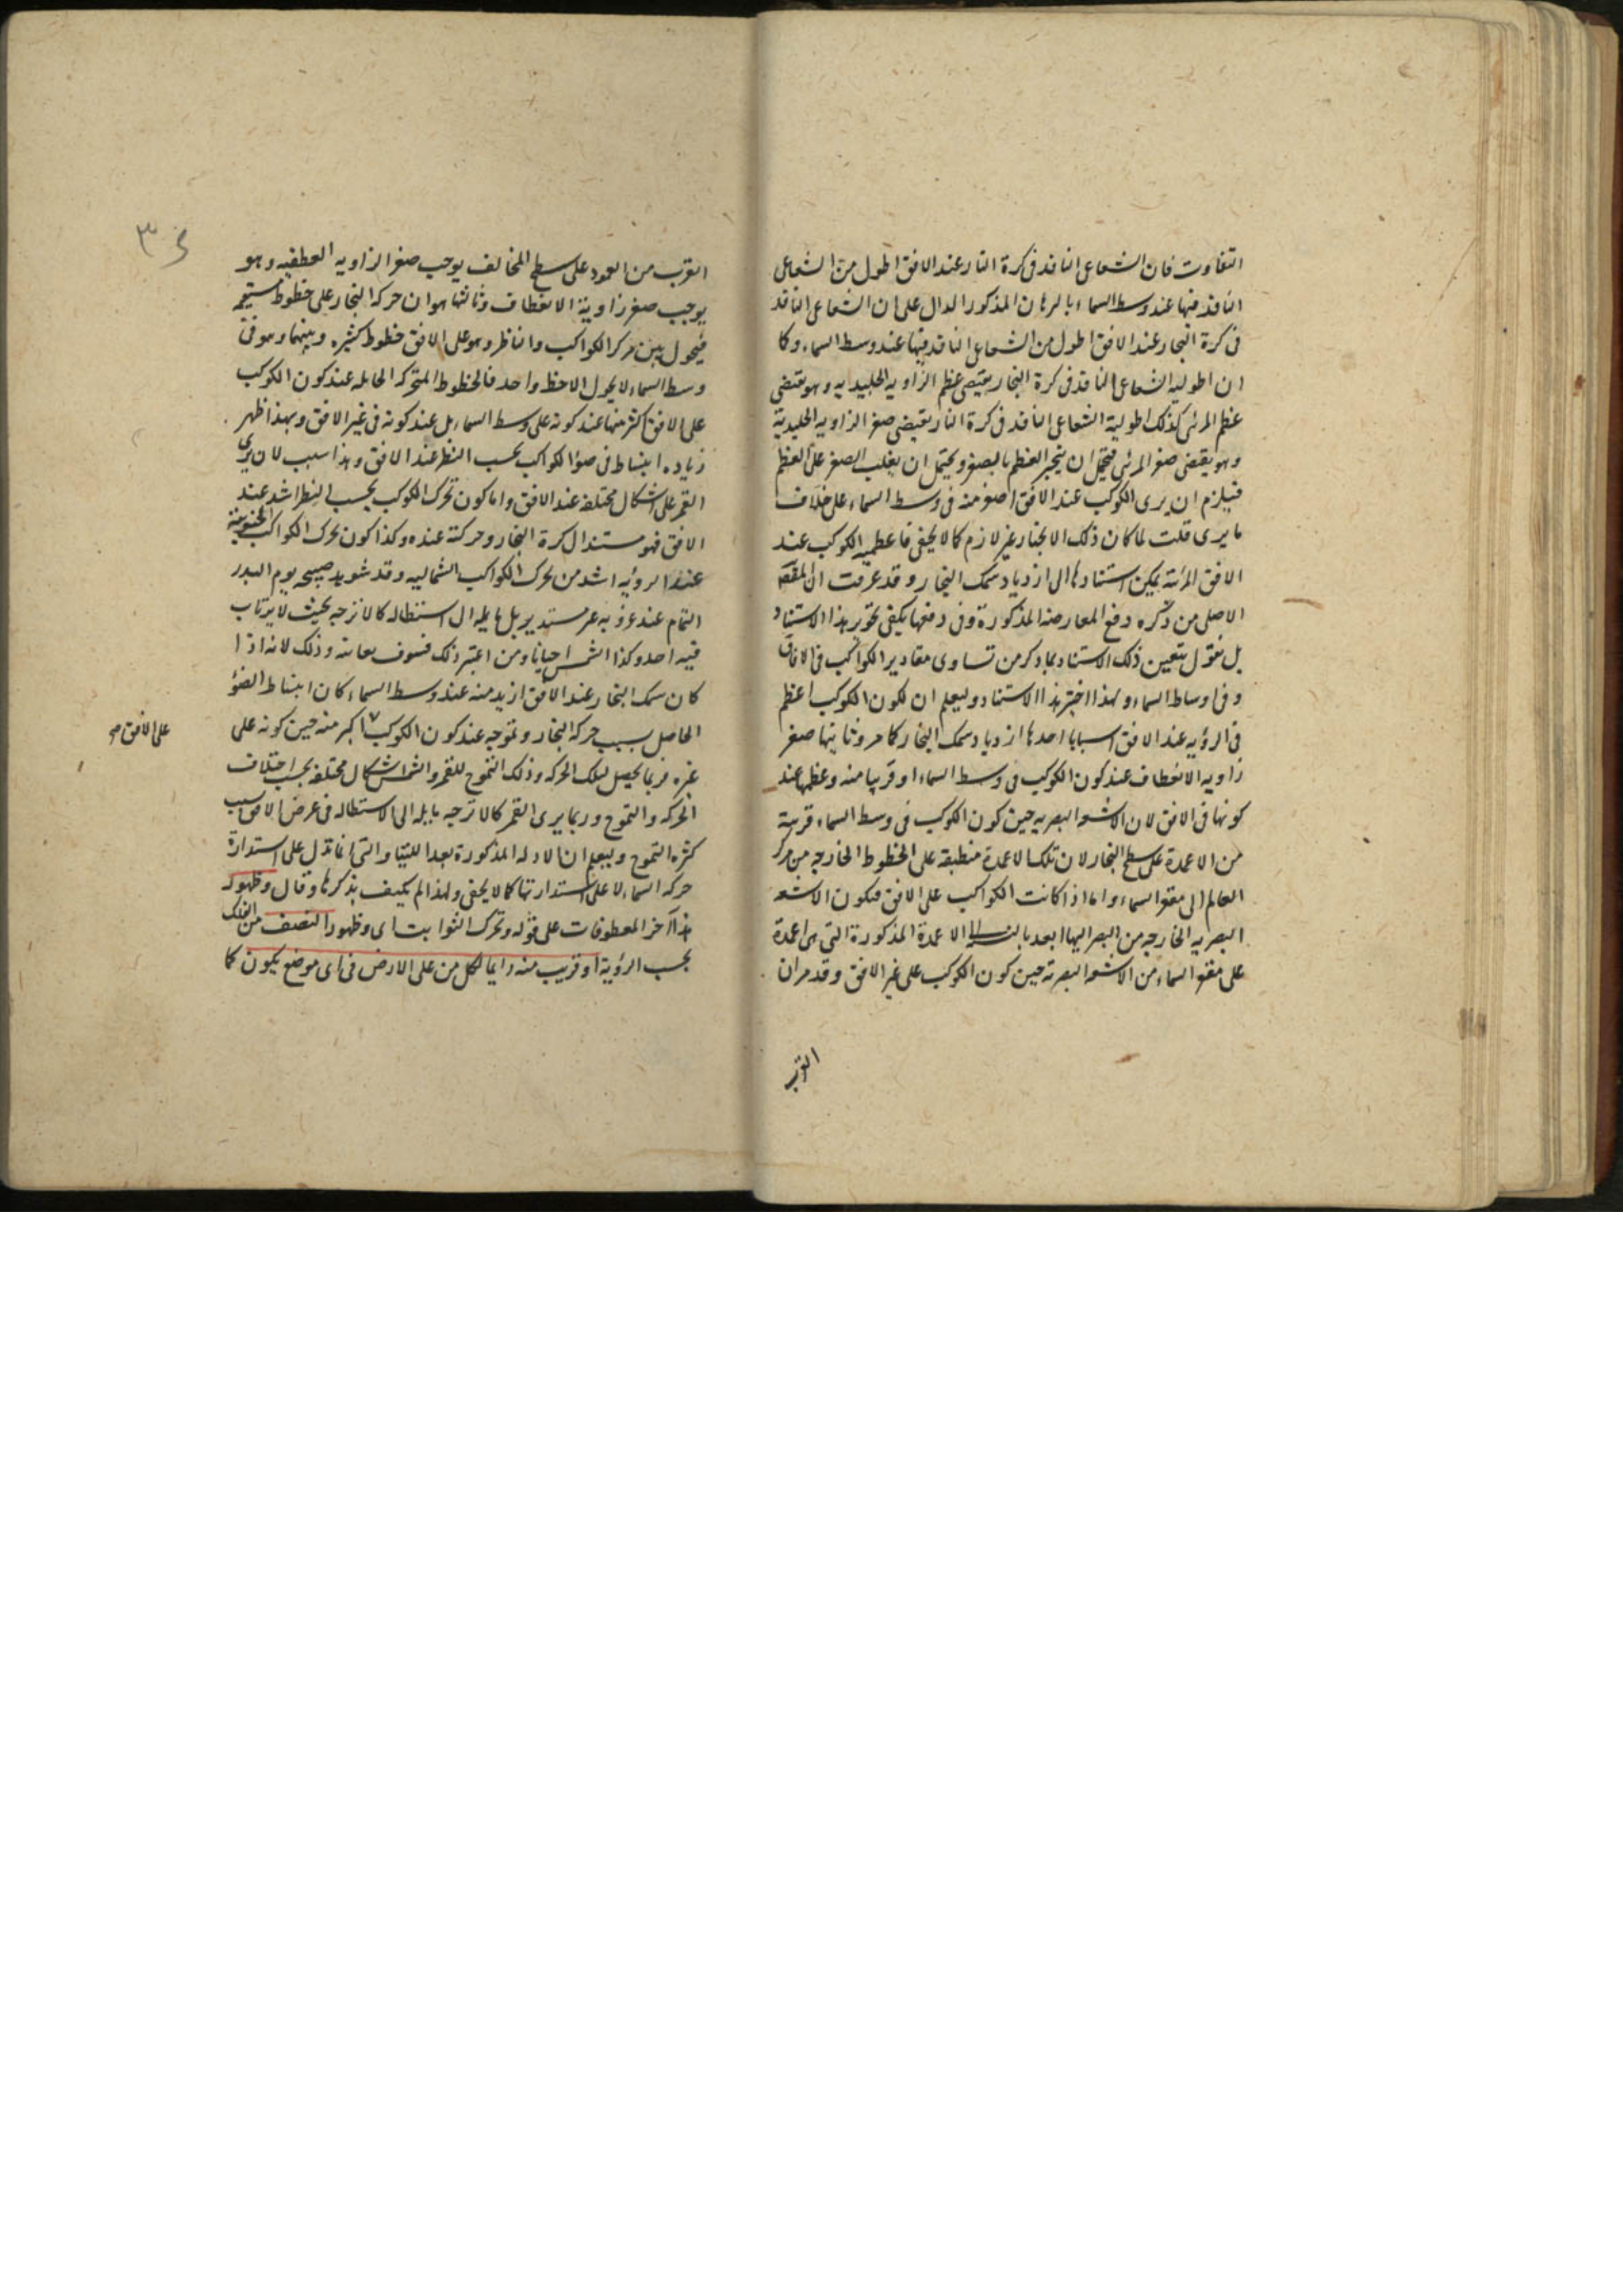 التفاوت فان الشعاعى النافذ فى كرة النار عند الافق اطول من الشعاعى
النافذ فيها عند وسط السماء بالبرهان المذكور الدال على ان الشعاعى النافذ
فى كرة البخار عند الافق اطول من الشعاعى النافذ فيها عند وسط السماء وكما
ان اطولية الشعاعى النافذ فى كرة البخار يقتضى عظم الزاويه الجليديه وهو يقتضى
عظم المرئى كذلك اطولية الشعاعى النافذ فى كرة النار يقتضى صغر الزاويه الجليدية
وهو يقتضى صغر المرئى فيحتمل ان ينجبر العظم بالصغر ويحتمل ان يغلب الصغر على العظم
فيلزم ان يرى الكوكب عند الافق اصغر منه فى وسط السماء على خلاف
ما يرى قلت لما كان ذلك الانجبار غير لازم كما لا يخفى فاعظميه الكوكب عند
الافق المرئية يمكن استنادها الى ازدياد سمك البخار وقد عرفت ان المقصد
الاصلى من ذكره دفع المعارضه المذكورة وفى دفعها يكفى تجويز هذا الاستناد
بل نقول يتعين ذلك الاستناد بما ذكر من تساوى مقادير الكواكب فى الافاق
وفى اوساط السماء ولهذا اختير هذا الاستناد وليعلم ان لكون الكوكب اعظم
فى الرؤيه عند الافق اسبابا احدها ازدياد سمك البخار كما مر وثانيها صغر
زاويه الانعطاف عند كون الكوكب فى وسط السماء او قريبا منه وعظمها عند
كونها فى الافق لان الاشعة البصريه حين كون الكوكب فى وسط السماء قريبة
من الاعمدة على سطح البخار لان تلك الاعمدة منطبقة على الخطوط الخارجه من مركز
العالم الى مقعر السماء واما اذا كانت الكواكب على الافق فيكون الاشعة
البصريه الخارجه من البصر اليها ابعد بالنسبة الى الاعمدة المذكورة التى هى اعمدة
على مقعر السماء من الاشعة البصرية حين كون الكوكب على غير الافق وقد مر ان
القرب
القرب من العمود على سطح المخالف يوجب صغر الزاويه العطفيه وهو
يوجب صغر زاوية الانعطاف وثالثها هو ان حركة البخار على خطوط مستقيمة
فيحول بين مركز الكواكب والناظر وهو على الافق خطوط كثيره وبينهما وهو فى
وسط السماء لا يحول الا خط واحد فالخطوط المتحركه الحايله عند كون الكوكب
على الافق اكثر منها عند كونه على وسط السماء بل عند كونه فى غير الافق وبهذا ظهر
زياده انبساط فى ضوء الكواكب بحسب النظر عند الافق وهذا سبب لان يرى
القمر على اشكال مختلفة عند الافق واما كون تحرك الكوكب بحسب النظر اشد عند
الافق فهو مستند الى كرة البخار وحركته عنده وكذا كون تحرك الكواكب الجنوبية
عند الرؤيه اشد من تحرك الكواكب الشماليه وقد شوهد صبيحه يوم البدر
التمام عند غروبه غير مستدير بل مايله الى استطاله كالاترجه بحيث لا يرتاب
فيه احد وكذا الشمس احيانا ومن اعتبر ذلك فسوف يعاينه وذلك لانه اذا
كان سمك البخار عند الافق ازيد منه عند وسط السماء كان انبساط الضوء
الحاصل بسبب حركة البخار وتموجه عند كون الكوكب اكبر منه حين كونه على
على الافق صح
غيره فربما يحصل لتلك الحركه وذلك التموج للقمر والشمس اشكال مختلفة بحسب اختلاف
الحركه والتموج وربما يرى القمر كالاترجه مايله الى الاستطاله فى عرض الافق بسبب
كثره التموج وليعلم ان الادله المذكورة بعد اللتيا والتى انما تدل على استدارة
حركه السماء لا على استدارتها كما لا يخفى ولهذا لم يكتف بذكرها وقال وظهور
هذا آخر المعطوفات على قوله وتحرك الثوابت اى وظهور النصف من الفلك
بحسب الرؤية او قريب منه دايما لكل من على الارض فى اى موضع يكون كما